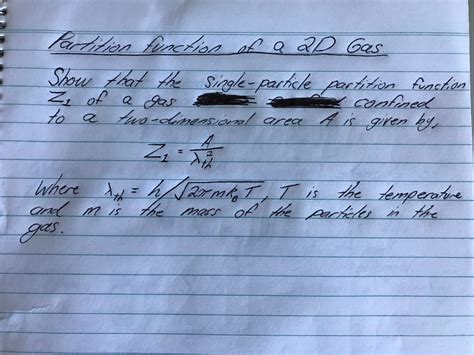 Partition function of a 2D Gas
Show that the single-particle partition function
Z₁ of a gas confined
to a two-dimensional area A is given by,
Z₁ = A / λ²th
Where λth = h/√2πmk_BT, T is the temperature
and m is the mass of the particles in the
gas.